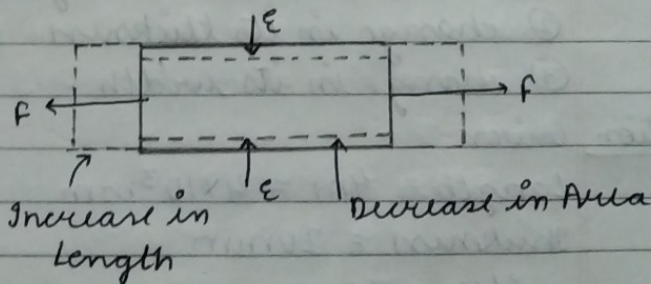 ε
F
F
ε
Increase in
Length
Decrease in Area